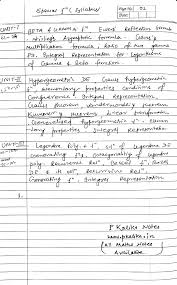 Special fⁿ (Syllabus)
Page No. 01
UNIT-I BETA & GAMMA fⁿ Euler's Reflection formula
Stirling's Asymptotic formula Gauss's
multiplication formula, Ratio of two gamma
fⁿs. Integral Representation for logarithm
of Gamma & Beta function.
UNIT-II Hypergeometric DE Gauss Hypergeometric
fⁿ elementary properties conditions of
Convergence, Integral Representation
Gauss theorem Vandermonde's theorem
Kummer's theorem linear transformation
Generalised hypergeometric fⁿ elemen
tary properties Integral Representation
UNIT-III Legendre Poly & fⁿ. Solⁿ of Legendre's DE
Generating fⁿs. Orthogonality of Legendre
poly. Recurrence Relⁿ
DE & it Recurrence Relⁿ
Generating fⁿ. Integral Representation
Kalika Notes
All Maths Notes
Available